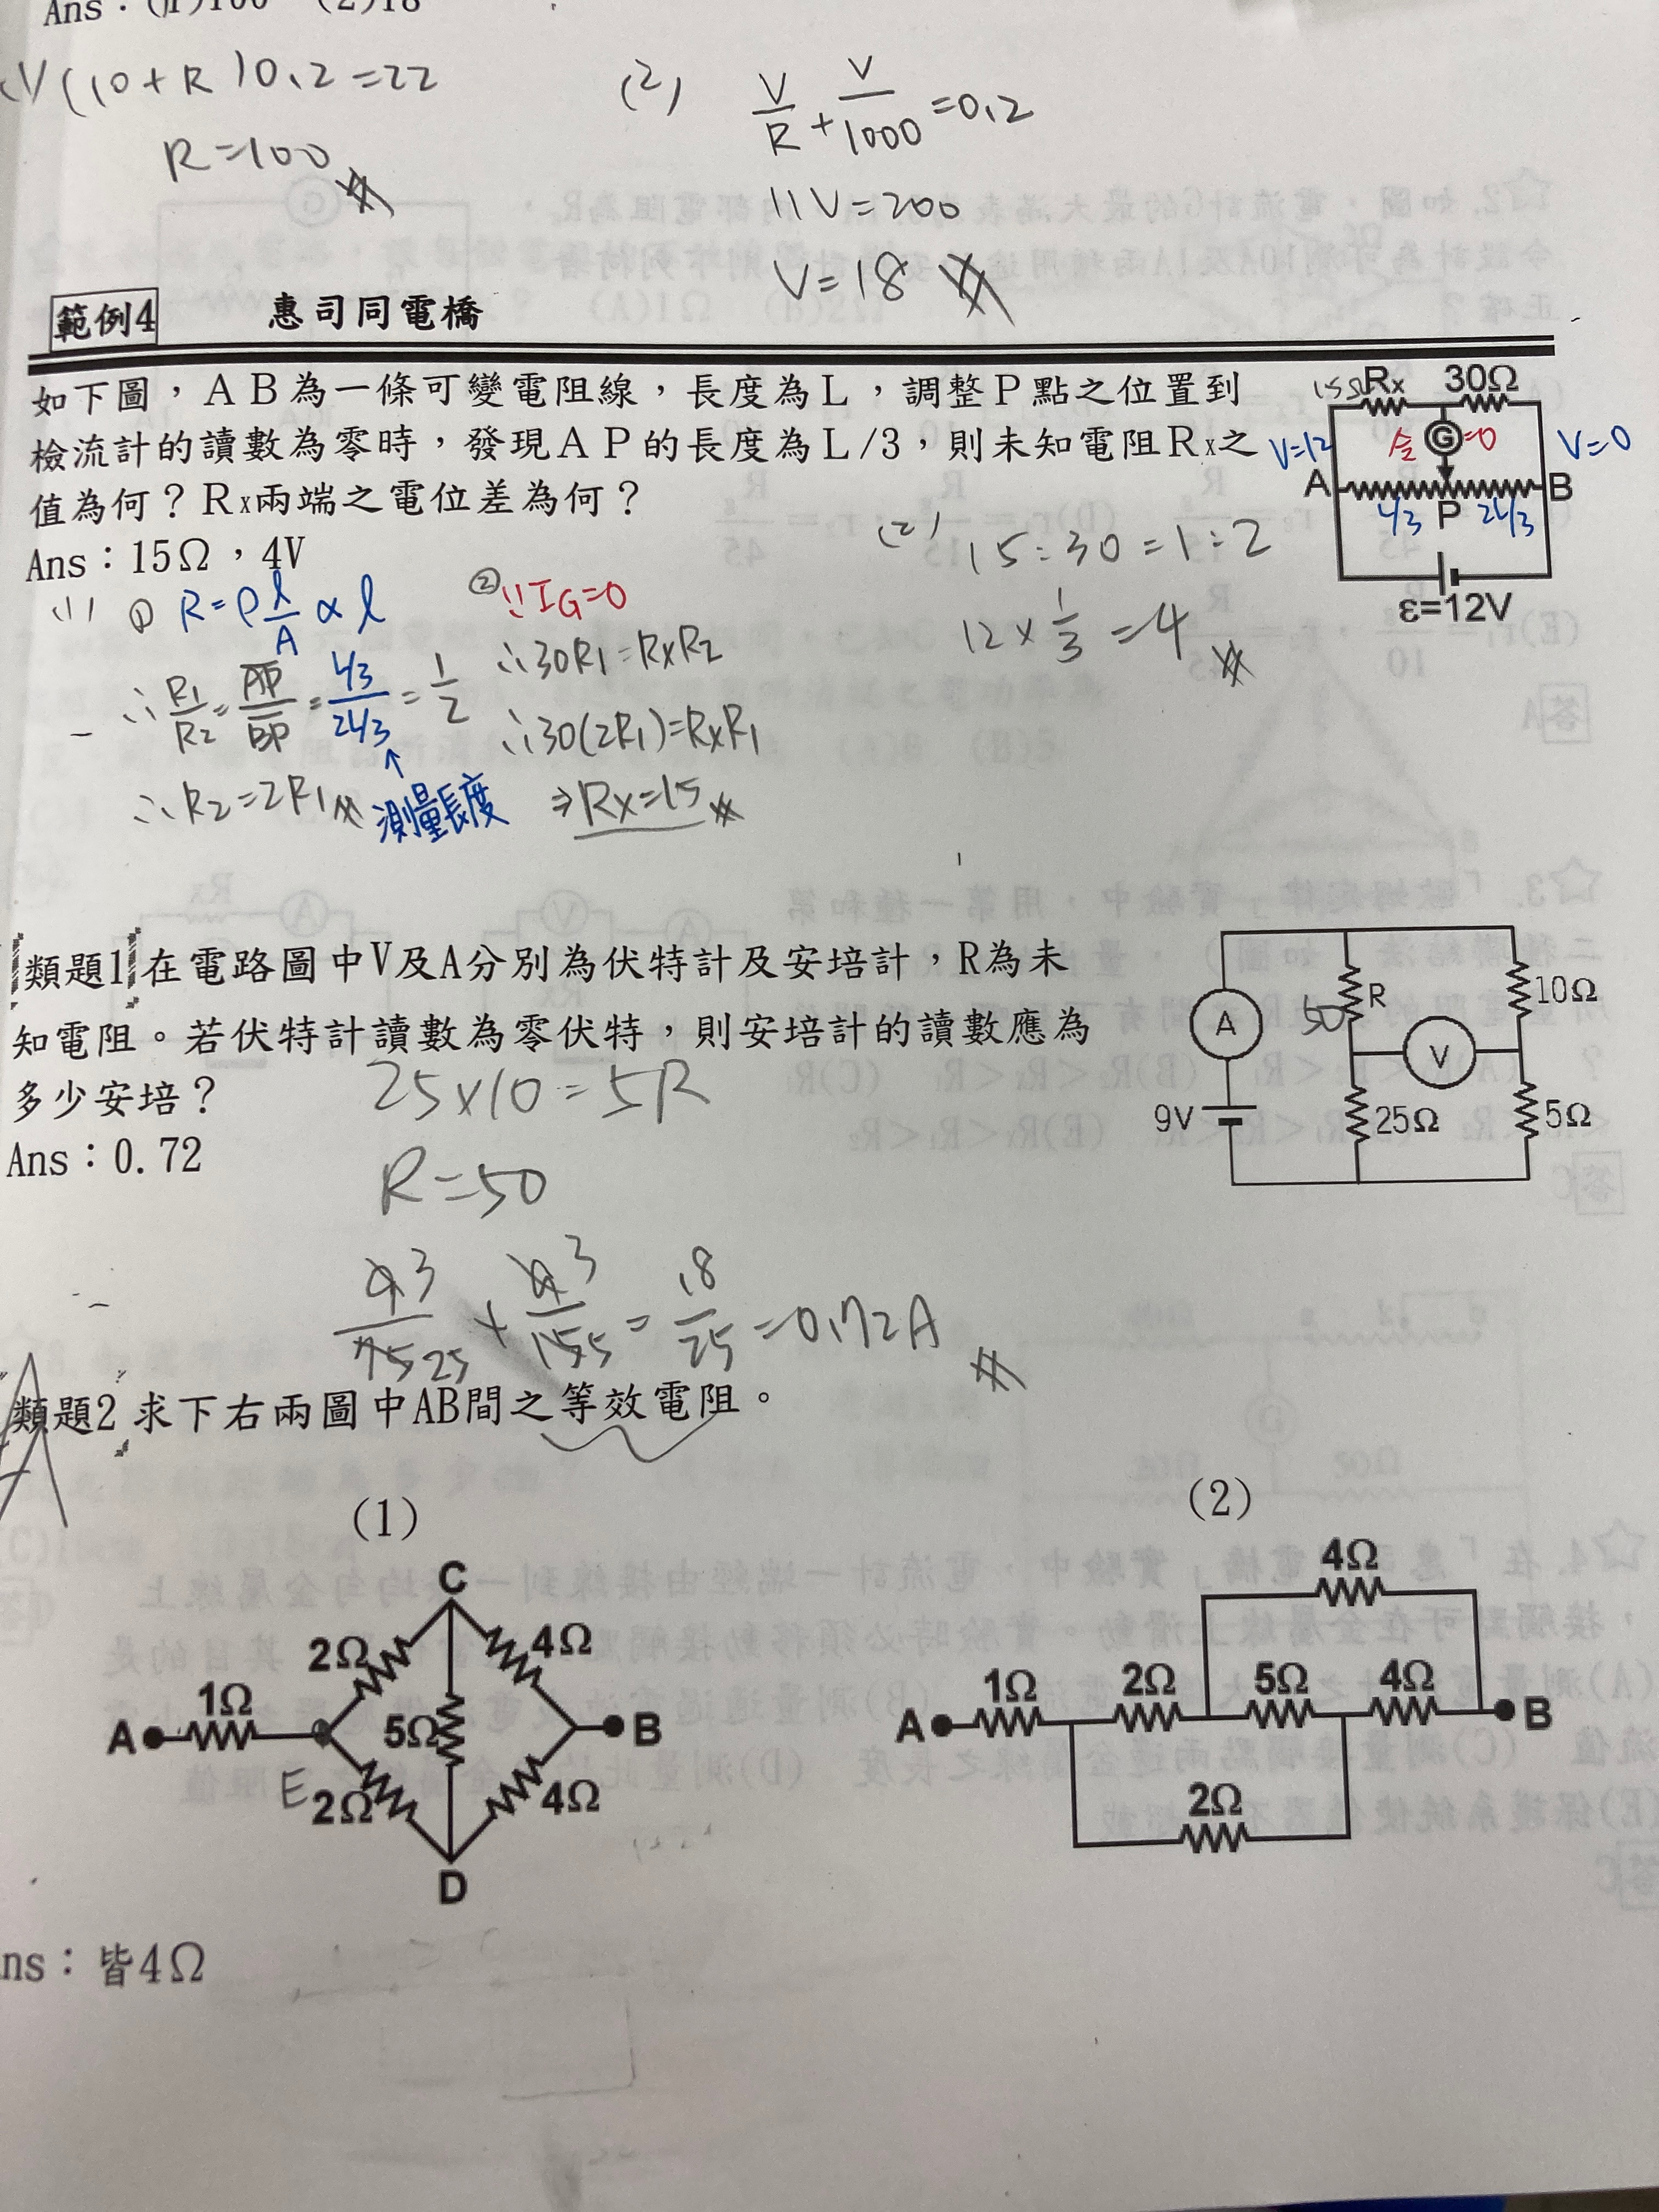 Ans：(1)100  (2)18
(1) (10+R)0.2=22
R=100
(2) V/R + V/1000 = 0.2
11V=200
V=18
範例4 惠司同電橋
如下圖，ＡＢ為一條可變電阻線，長度為Ｌ，調整Ｐ點之位置到
檢流計的讀數為零時，發現ＡＰ的長度為Ｌ/3，則未知電阻Rx之
值為何？Rx兩端之電位差為何？
Ans：15Ω，4V
15Ω Rx 30Ω
V=12 令 G =0 V=0
A B
L/3 P 2L/3
ε=12V
(1) ① R=ρl/A ∝ l
∴ R1/R2 = AP/BP = L/3 / 2L/3 = 1/2
∴R2=2R1
測量長度
② ∵IG=0
∴30R1=RxR2
∴30(2R1)=RxR1
⇒Rx=15
(2) 15：30=1：2
12×1/3=4
類題1 在電路圖中V及A分別為伏特計及安培計，R為未
知電阻。若伏特計讀數為零伏特，則安培計的讀數應為
多少安培？
Ans：0.72
25×10=5R
R=50
9 3/75 25 + 9 3/15 5 = 18/25 = 0.72A
A 50 R 10Ω
V
9V 25Ω 5Ω
類題2 求下右兩圖中AB間之等效電阻。
(1)
C
2Ω 4Ω
1Ω
A 5Ω B
E 2Ω 4Ω
D
(2)
4Ω
1Ω 2Ω 5Ω 4Ω
A B
2Ω
ns：皆4Ω